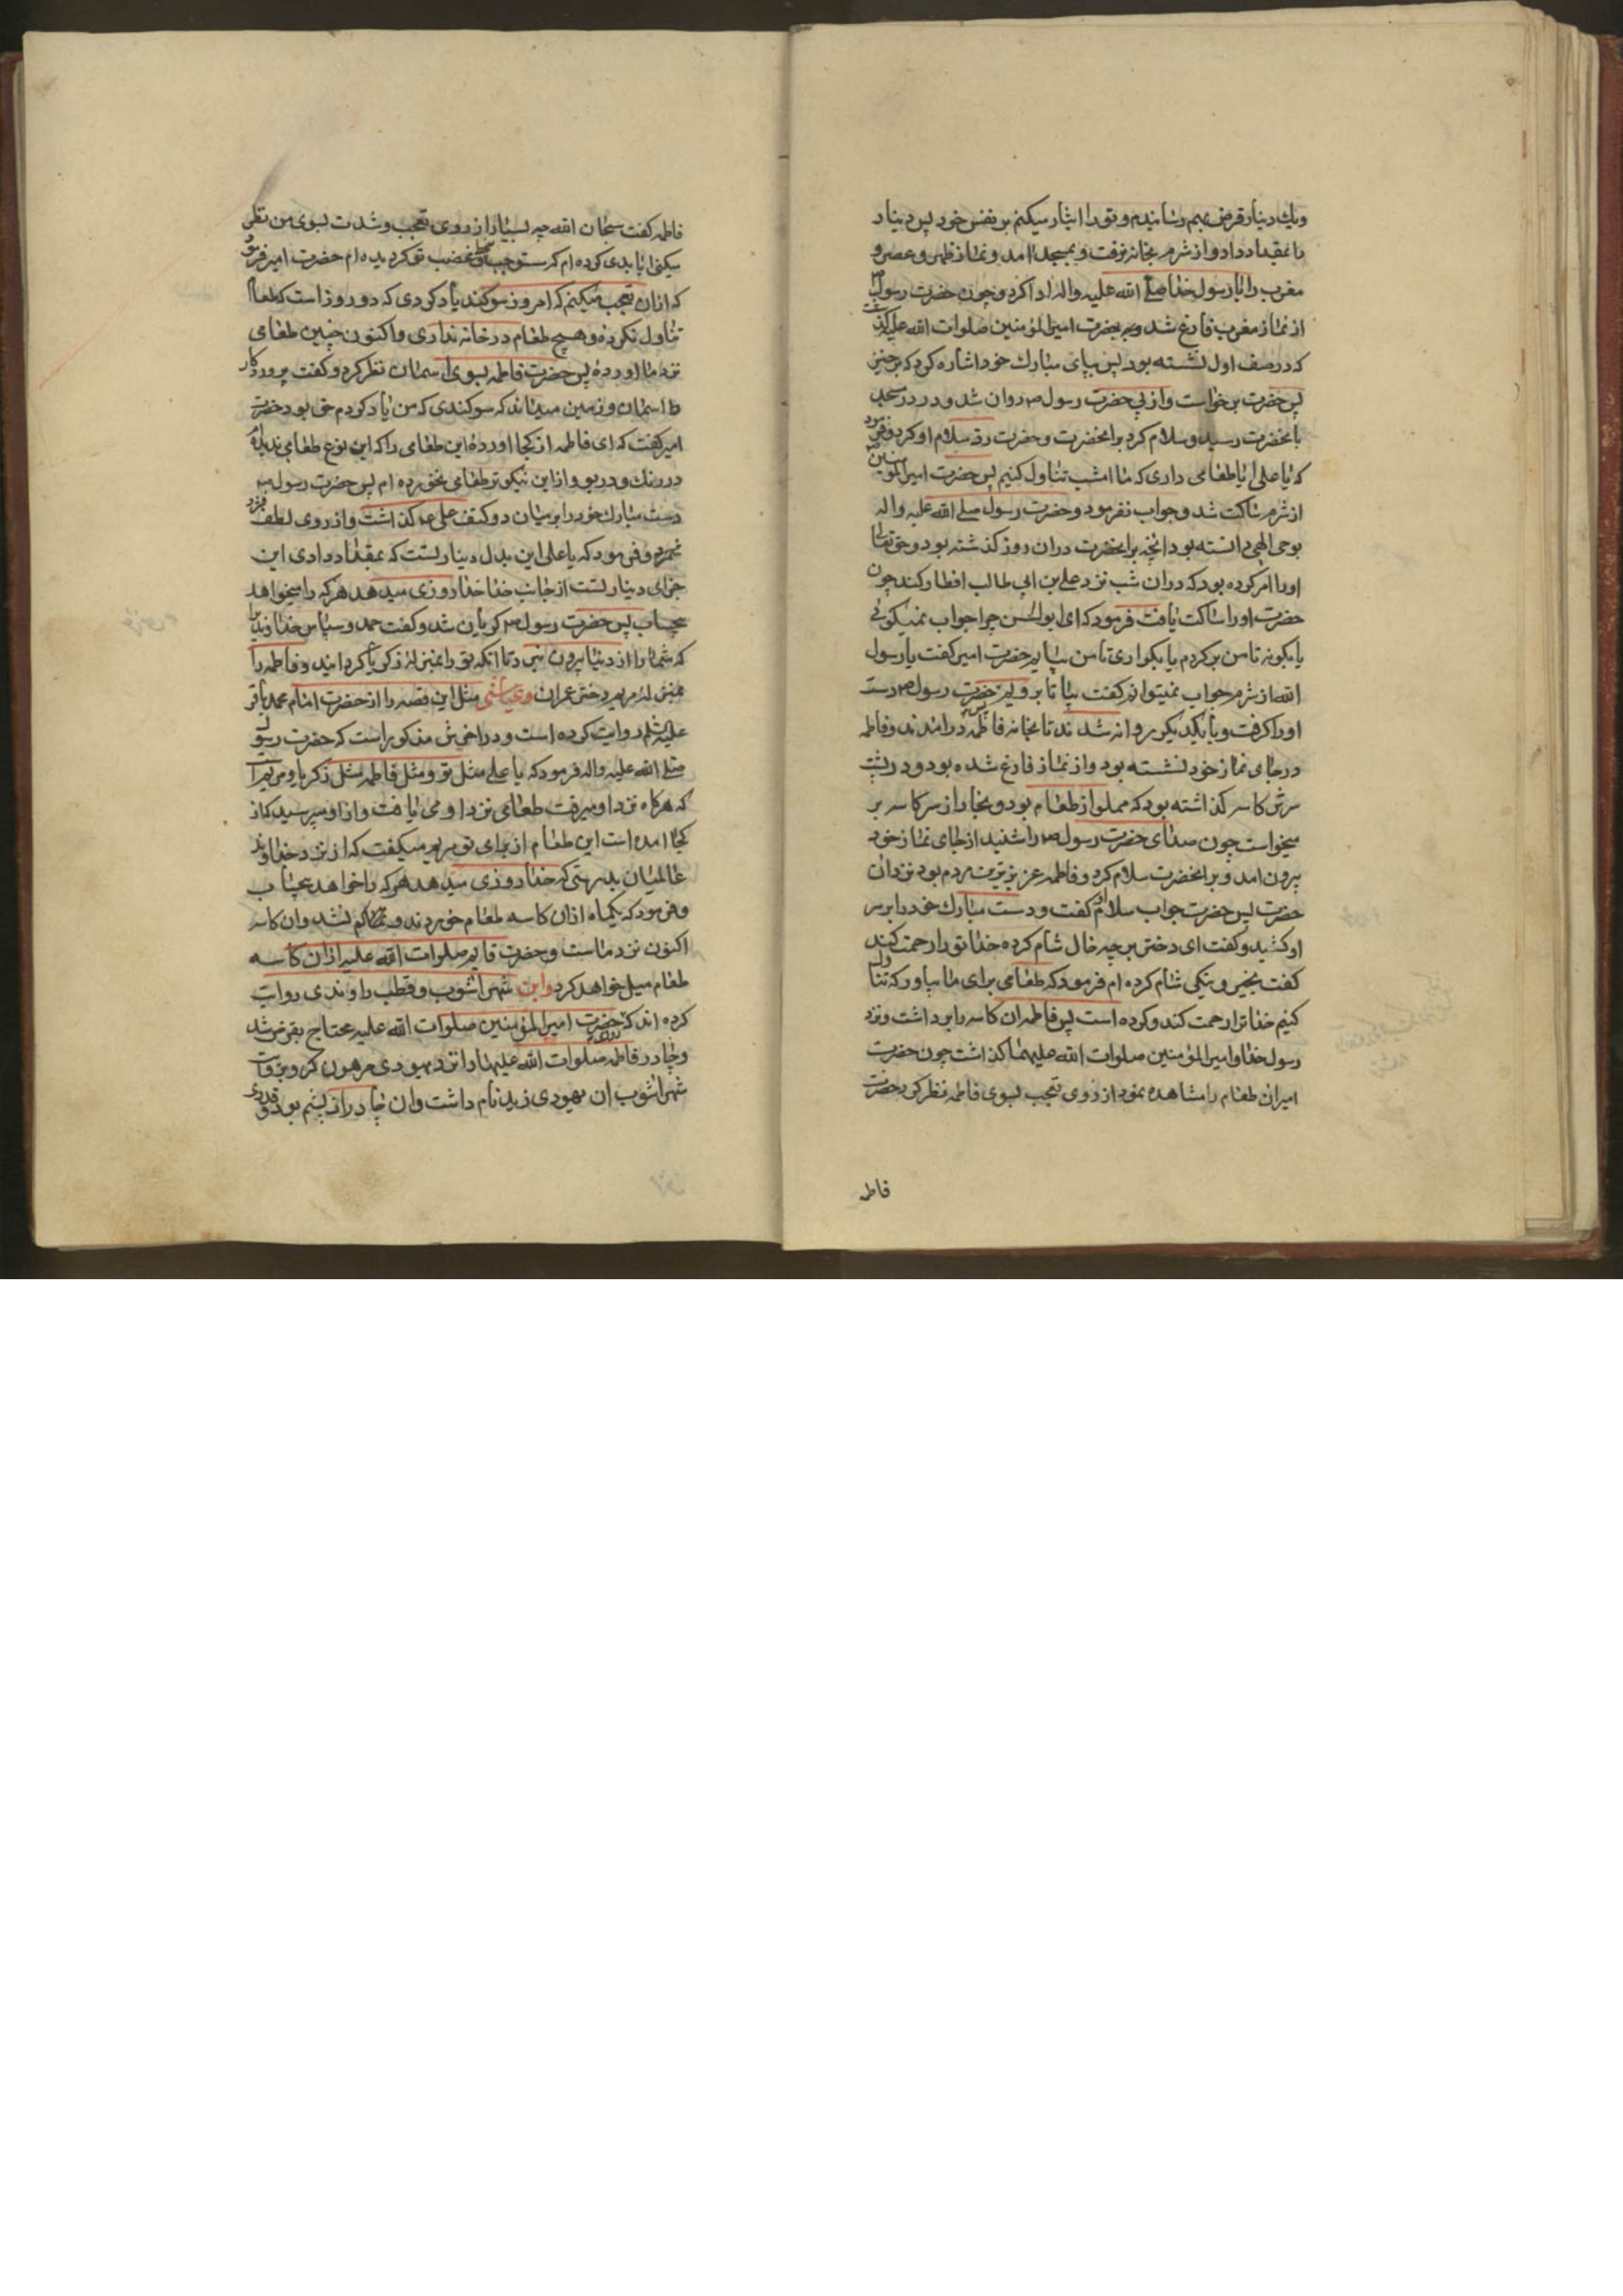 ویك دینار قرض بهم رسانیدم و تو را ایثار میکنم بر نفس خود پس دینار
را بمقداد داد و از شرم بخانه نرفت و بمسجد امد و نماز ظهر و عصر و
مغرب را با رسول خدا صلی الله علیه واله ادا کرد و چون حضرت رسول ص
از نماز مغرب فارغ شد بحضرت امیرالمؤمنین صلوات الله علیه گذشت
که در صف اول نشسته بود پس بپای مبارك خود اشاره کرد که برخیز
پس حضرت برخواست و از پی حضرت رسول ص روان شد و در در مسجد
بانحضرت رسید و سلام کرد بر انحضرت و حضرت رد سلام او کرد و فرمود
که یا علی ایا طعامی داری که ما امشب تناول کنیم پس حضرت امیرالمؤمنین
از شرم ساکت شد و جواب نفرمود و حضرت رسول صلی الله علیه واله
بوحی الهی دانسته بود انچه بر انحضرت دران روز کذشته بود و حق تعالی
او را امر کرده بود که دران شب نزد علی بن ابی طالب افطار کند چون
حضرت او را ساکت یافت فرمود که ای ابوالحسن چرا جواب نمیکوئی
یا بکو نه تا من برکردم یا بکو اری تا من بیایم حضرت امیر کفت یا رسول
الله از شرم جواب نمیتوانم کفت بیا تا برویم حضرت رسول ص دست
او را کرفت و با یکدیکر روانه شدند تا بخانه فاطمه درامدند و فاطمه
در جای نماز خود نشسته بود و از نماز فارغ شده بود و در پشت
سرش کاسه کذاشته بود که مملو از طعام بود و بخار از سر کاسه بر
میخواست چون صدای حضرت رسول ص را شنید از جای نماز خود
بیرون امد و بر انحضرت سلام کرد و فاطمه عزیزترین مردم بود نزد ان
حضرت پس حضرت جواب سلام او کفت و دست مبارك خود را بر سر
او کشید و کفت ای دختر بر چه حال شام کرده خدا تو را رحمت کند
کفت بخیر و نیکی شام کرده ام فرمود که طعامی برای ما بیاور که تناول
کنیم خدا ترا رحمت کند و کرده است پس فاطمه ان کاسه را برداشت و نزد
رسول خدا و امیرالمؤمنین صلوات الله علیهما کذاشت چون حضرت
امیر ان طعام را مشاهده نمود از روی تعجب بسوی فاطمه نظر کرد حضرت
فاطمه
فاطمه کفت سبحان الله چه بسیار از روی تعجب و شدت بسوی من نظر
میکنی ایا بدی کرده ام که مستوجب سخط و غضب تو کردیده ام حضرت امیر فرمود
که ازان تعجب میکنم که امروز سوکند یاد کردی که دو روز است که طعام
تناول نکرده و هیچ طعام در خانه نداری و اکنون چنین طعامی
نزد ما اوردهٔ پس حضرت فاطمه بسوی اسمان نظر کرد و کفت پروردکار
اسمان و زمین میداند که سوکندی که من یاد کردم حق بود حضرت
امیر کفت که ای فاطمه از کجا اوردهٔ این طعامی را که این نوع طعامی ندیده‌ام
در رنك و در بو و از این نیکوتر طعامی نخورده ام پس حضرت رسول ص
دست مبارك خود را بر میان دو کتف علی ع کذاشت و از روی لطف
و فرمود که یا علی این بدل دینار تست که بمقداد دادی این
جزای دینار تست از جانب خدا خدا روزی میدهد هر که را میخواهد
بیحساب پس حضرت رسول ص کریان شد و کفت حمد و سپاس خداوندیرا
که شما را از دنیا بیرون نبرد تا انکه تو را بمنزلهٔ زکریا کردانید و فاطمه را
بمنزلهٔ مریم دختر عمران وعیاشی مثل این قصه را از حضرت امام محمد باقر
علیه السلام روایت کرده است و در اخرش مذکور است که حضرت رسول
صلی الله علیه واله فرمود که یا علی مثل تو و مثل فاطمه مثل زکریا و مریم است
که هرکاه نزد او میرفت طعامی نزد او می یافت و از او میپرسید که از
کجا امده است این طعام از برای تو مریم میکفت که از نزد خداوند
عالمیان بدرستی که خدا روزی میدهد هر که را خواهد بیحساب
و فرمود که یکماه ازان کاسه طعام خوردند و کم نشد و ان کاسه
اکنون نزد ماست و حضرت قایم صلوات الله علیه ازان کاسه
طعام میل خواهد کرد وابن شهر اشوب و قطب راوندی روایت
کرده اند که حضرت امیرالمؤمنین صلوات الله علیه محتاج بقرض شد
و چادر فاطمه صلوات الله علیها را نزد یهودی مرهون کرد و بروایت
شهر اشوب ان یهودی زید نام داشت و ان چادر از پشم بود و قدری